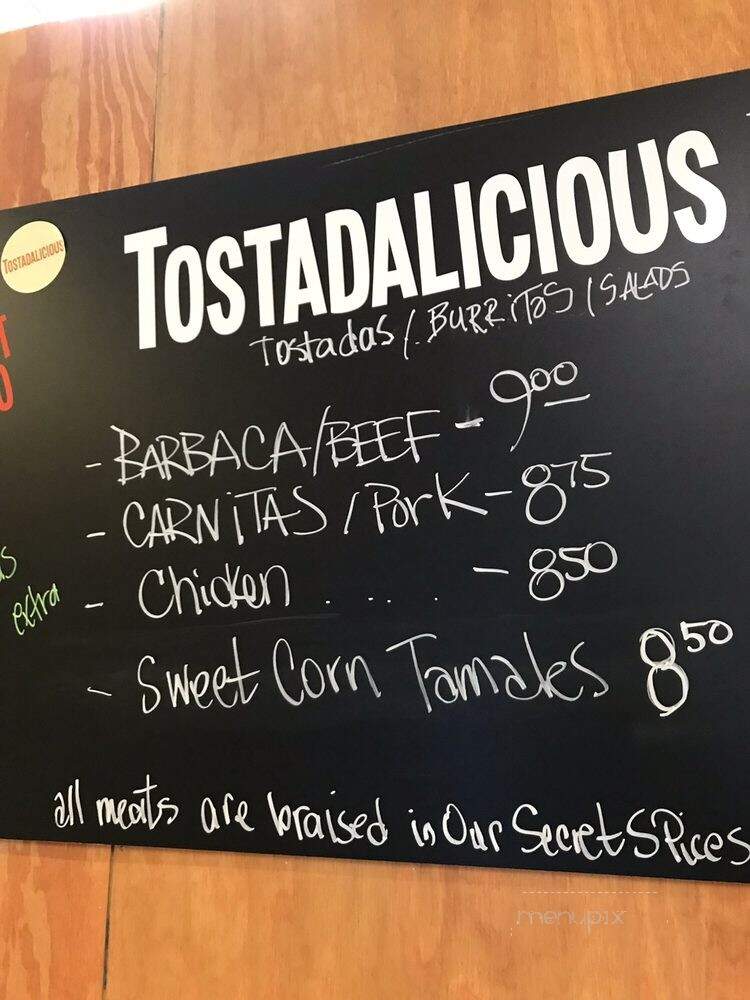 TOSTADALICIOUS
TOSTADALICIOUS
Tostadas / BURRiTOS / SALADS
- BARBACA/BEEF - 9.00
- CARNiTAS / Pork - 875
- Chicken . . . . - 850
- Sweet Corn Tamales 850
extra
all meats are braised in Our Secret SPices
menupix